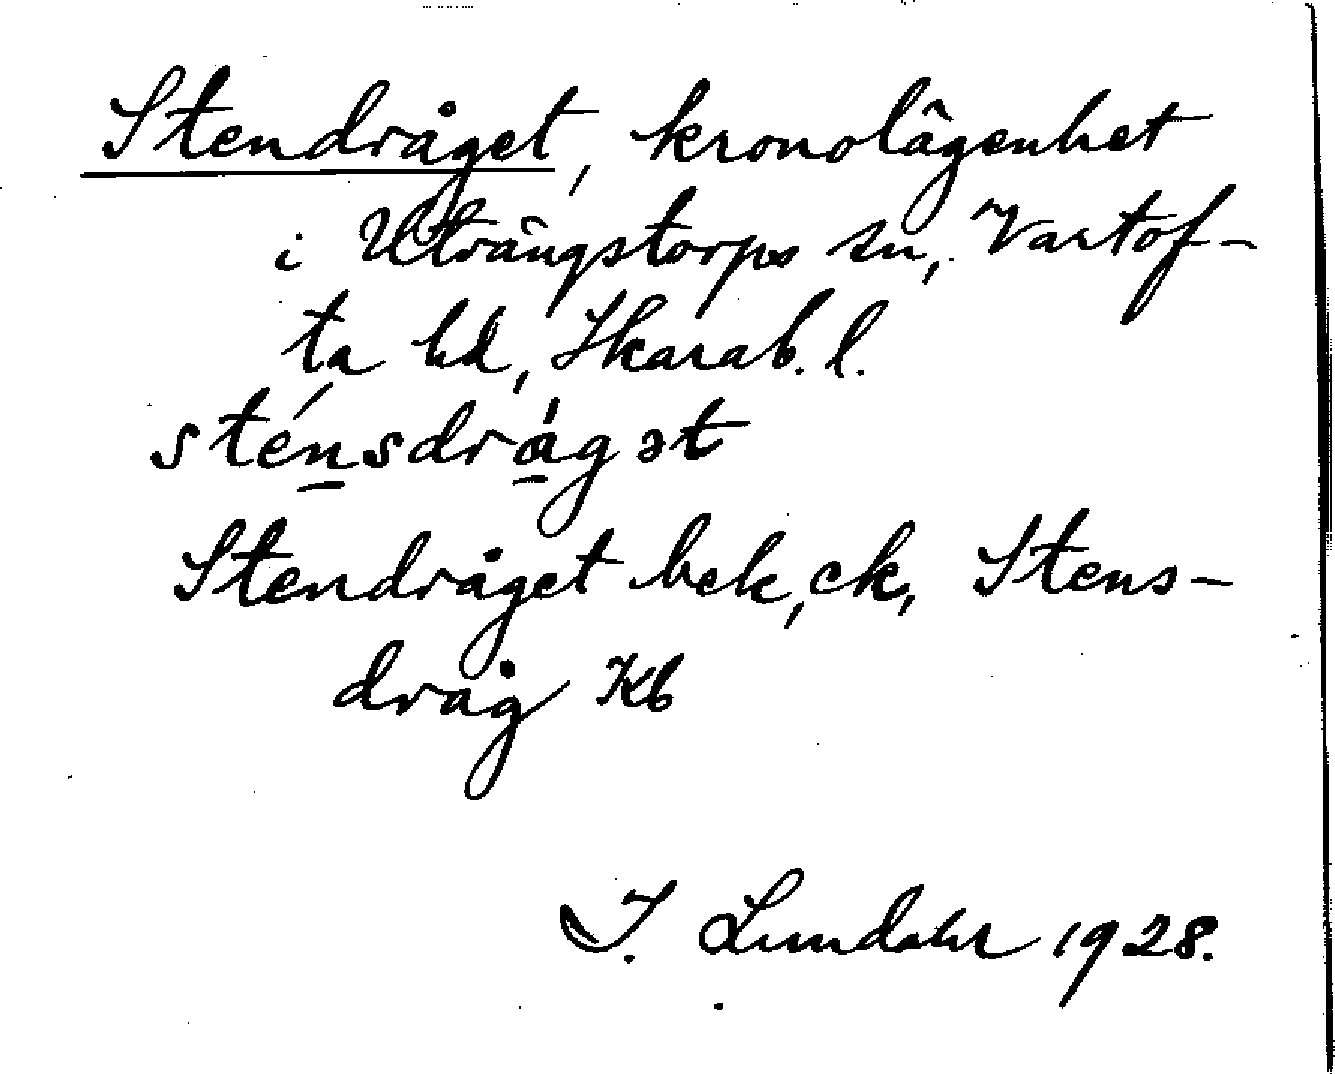 Stendråget, kronolägenhet
i Utvängstorps sn, Vartof-
ta hd, Skarab. l.
sténsdrágət
Stendråget bek, ek, Stens-
dråg Kb
I. Lundahl 1928.